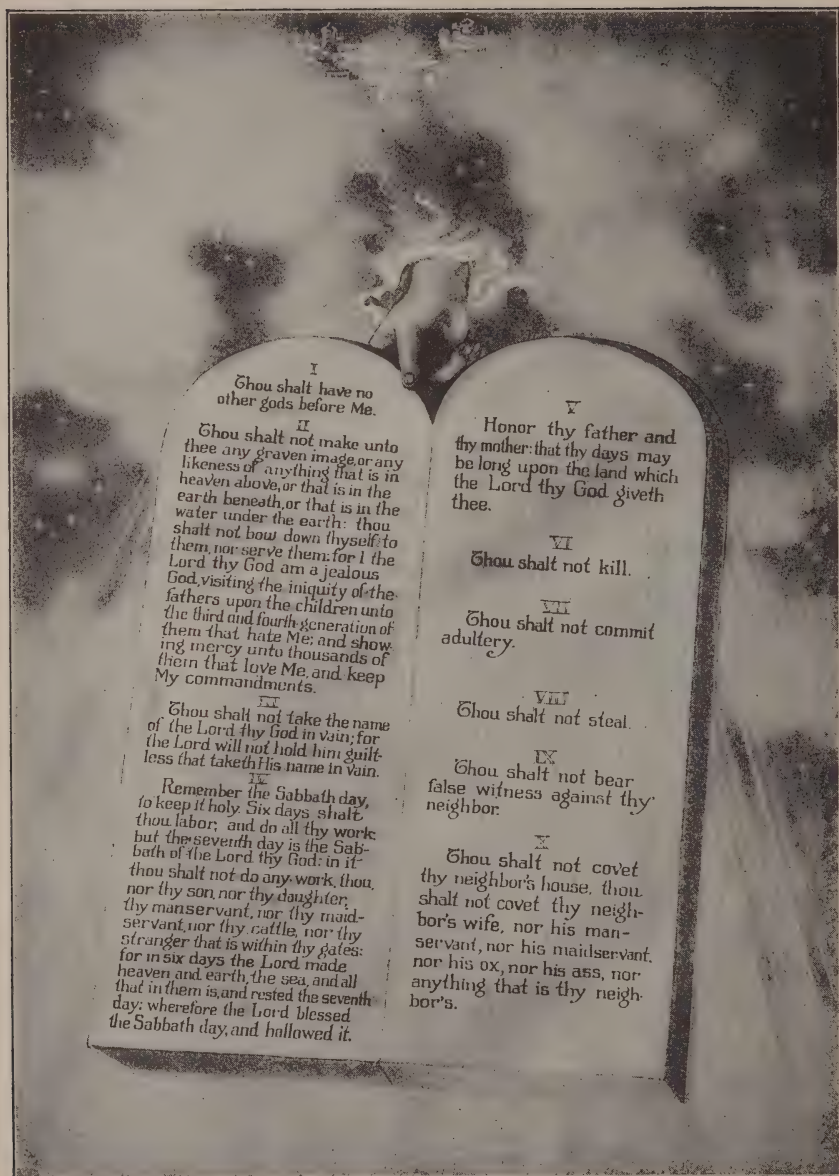 I
Thou shalt have no
other gods before Me.
II
Thou shalt not make unto
thee any graven image, or any
likeness of anything that is in
heaven above, or that is in the
earth beneath, or that is in the
water under the earth: thou
shalt not bow down thyself to
them, nor serve them: for I the
Lord thy God am a jealous
God, visiting the iniquity of the
fathers upon the children unto
the third and fourth generation of
them that hate Me; and show-
ing mercy unto thousands of
them that love Me, and keep
My commandments.
III
Thou shalt not take the name
of the Lord thy God in vain; for
the Lord will not hold him guilt-
less that taketh His name in vain.
IV
Remember the Sabbath day,
to keep it holy. Six days shalt
thou labor, and do all thy work:
but the seventh day is the Sab-
bath of the Lord thy God: in it
thou shalt not do any work, thou,
nor thy son, nor thy daughter,
thy manservant, nor thy maid-
servant, nor thy cattle, nor thy
stranger that is within thy gates:
for in six days the Lord made
heaven and earth, the sea, and all
that in them is, and rested the seventh
day; wherefore the Lord blessed
the Sabbath day, and hallowed it.
V
Honor thy father and
thy mother: that thy days may
be long upon the land which
the Lord thy God giveth
thee.
VI
Thou shalt not kill.
VII
Thou shalt not commit
adultery.
VIII
Thou shalt not steal.
IX
Thou shalt not bear
false witness against thy
neighbor.
X
Thou shalt not covet
thy neighbor's house, thou
shalt not covet thy neigh-
bor's wife, nor his man-
servant, nor his maidservant,
nor his ox, nor his ass, nor
anything that is thy neigh-
bor's.